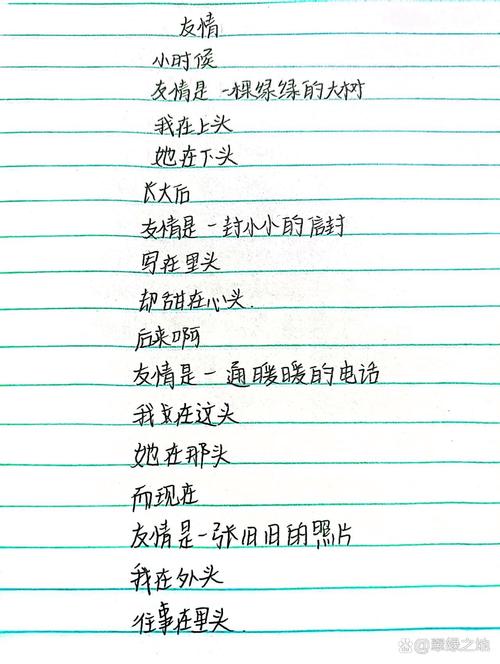 友情
小时候
友情是一棵绿绿的大树
我在上头
她在下头
长大后
友情是一封小小的信封
写在里头
却甜在心头.
后来啊
友情是一通暖暖的电话
我在这头
她在那头
而现在
友情是一张旧旧的照片
我在外头
往事在里头.
翠绿之地